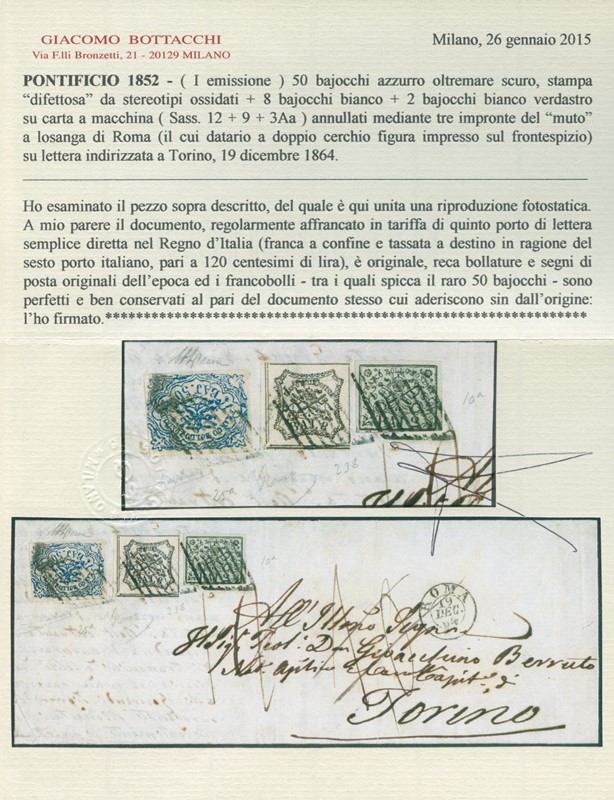 GIACOMO BOTTACCHI
Via F.lli Bronzetti, 21 - 20129 MILANO
Milano, 26 gennaio 2015
PONTIFICIO 1852 - ( I emissione ) 50 bajocchi azzurro oltremare scuro, stampa
“difettosa” da stereotipi ossidati + 8 bajocchi bianco + 2 bajocchi bianco verdastro
su carta a macchina ( Sass. 12 + 9 + 3Aa ) annullati mediante tre impronte del “muto”
a losanga di Roma (il cui datario a doppio cerchio figura impresso sul frontespizio)
su lettera indirizzata a Torino, 19 dicembre 1864.
Ho esaminato il pezzo sopra descritto, del quale è qui unita una riproduzione fotostatica.
A mio parere il documento, regolarmente affrancato in tariffa di quinto porto di lettera
semplice diretta nel Regno d’Italia (franca a confine e tassata a destino in ragione del
sesto porto italiano, pari a 120 centesimi di lira), è originale, reca bollature e segni di
posta originali dell’epoca ed i francobolli - tra i quali spicca il raro 50 bajocchi - sono
perfetti e ben conservati al pari del documento stesso cui aderiscono sin dall’origine:
l’ho firmato.**************************************************************
10a
23B
25a
10a
23B
ROMA
19
DEC
64
All'
Gioacchino Berruto
Torino